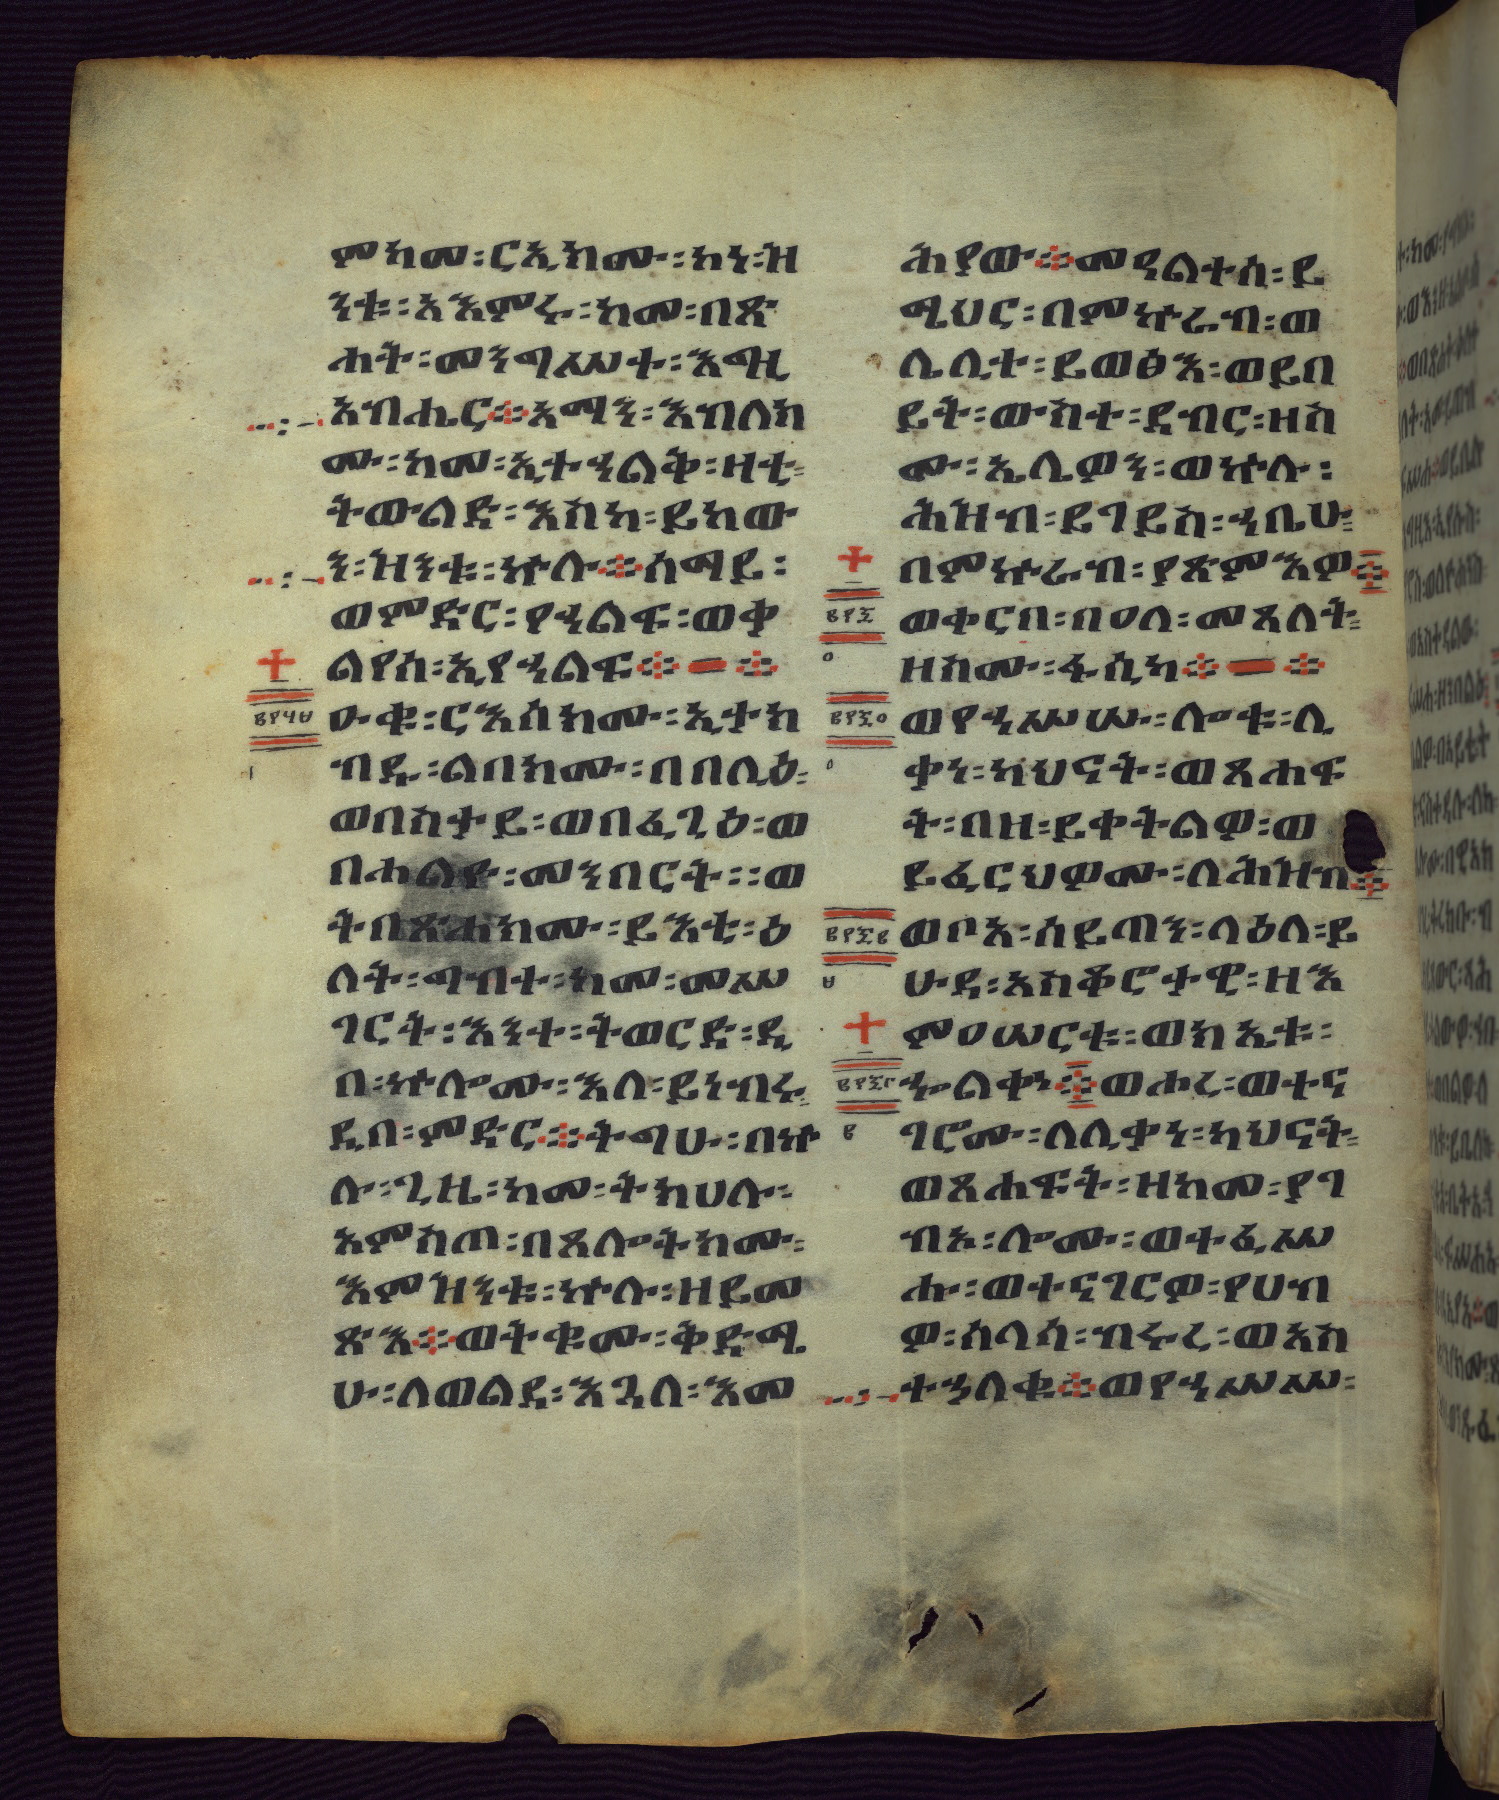 ምከመ፡ርኢክሙ፡ከነ፡ዝ
ንቱ፡አእምሩ፡ከመ፡በጽ
ሐት፡መንግሥተ፡እግዚ
አብሔር፨አማን፡እብለክ
ሙ፡ከመ፡ኢተኃልቅ፡ዛቲ፡
ትውልድ፡እስከ፡ይከው
ን፡ዝንቱ፡ኵሉ፨ሰማይ፡
ወምድር፡የኃልፍ፡ወቃ
ልየሰ፡ኢየኃልፍ፨ ፨
ዑቁ፡ርእሰክሙ፡ኢተክ
ብዱ፡ልበክሙ፡በበሊዕ፡
ወበስታይ፡ወበፈጊዕ፡ወ
በሐልዮ፡መንበርት፡፡ወ
ትበጽሐክሙ፡ይእቲ፡ዕ
ለት፡ግብተ፡ከመ፡መሥ
ገርት፡እንተ፡ትወርድ፡ዲ
በ፡ኵሎሙ፡እለ፡ይነብሩ፡
ዲበ፡ምድር፨ትግሁ፡በኵ
ሉ፡ጊዜ፡ከመ፡ትክሀሉ፡
አምስጦ፡በጸሎትክሙ፡
እምዝንቱ፡ኵሉ፡ዘይመ
ጽእ፨ወትቁሙ፡ቅድሜ
ሁ፡ለወልደ፡እጓለ፡እመ
ሕያው፨መዓልተሰ፡ይ
ሜህር፡በምኵራብ፡ወ
ሌሊተ፡ይወፅእ፡ወይበ
ይት፡ውስተ፡ደብር፡ዘስ
ሙ፡ኤሌዎን፡ወኵሉ፡
ሕዝብ፡ይገይስ፡ኃቤሁ፡
በምኵራብ፡ያጽምእዎ፨
ወቀርበ፡በዓለ፡መጸለት፡
ዘስሙ፡ፋሲካ፨ ፨
ወየኃሥሡ፡ሎቱ፡ሊ
ቃነ፡ካህናት፡ወጸሐፍ
ት፡በዘ፡ይቀትልዎ፡ወ
ይፈርህዎሙ፡ለሕዝብ፨
ወቦአ፡ሰይጣን፡ላዕለ፡ይ
ሁዳ፡አስቆሮታዊ፡ዘእ
ምዐሠርቱ፡ወክኢቱ፡
ኁልቀነ፨ወሐረ፡ወተና
ገሮሙ፡ለሊቃነ፡ካህናት፡
ወጸሐፍት፡ዘከመ፡ያገ
ብእ፡ሎሙ፡ወተፈሥ
ሑ፡ወተናገርዎ፡የሀብ
ዎ፡ሰላሰ፡ብሩረ፡ወአስ
ተኃለቁ፨ወየኃሥሥ፡